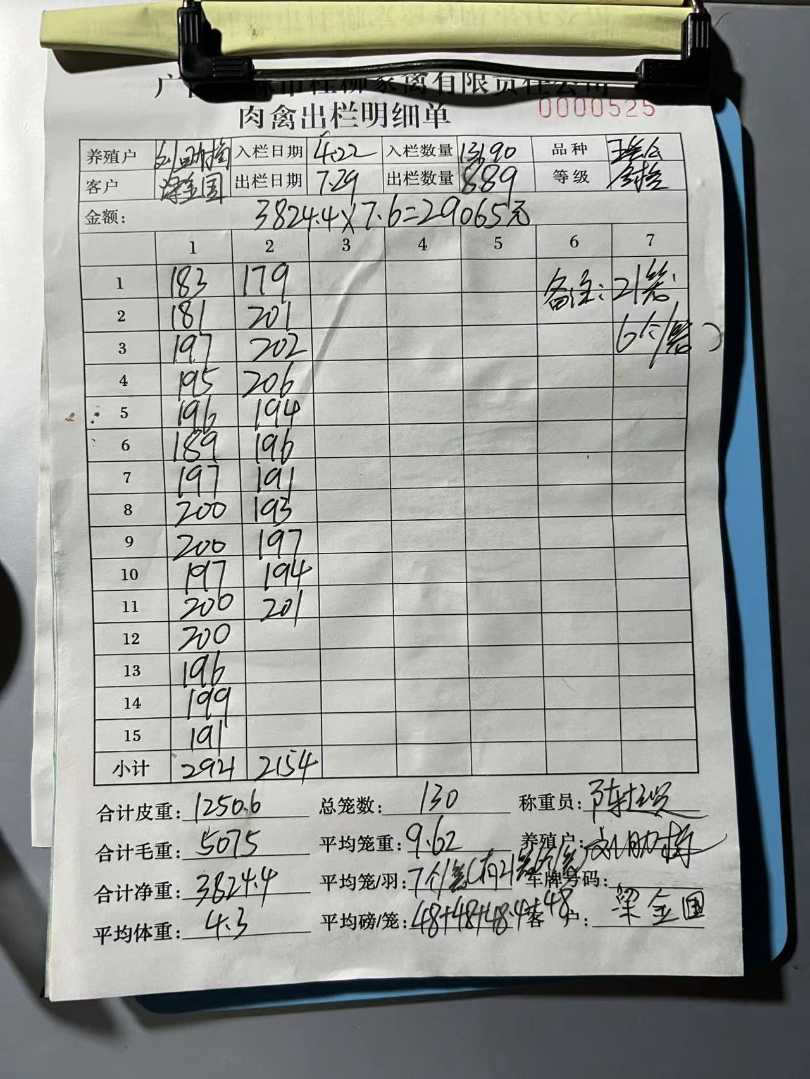 家禽有限责任公司
肉禽出栏明细单 0000525
养殖户 入栏日期 4.22 入栏数量 13190 品种
客户 梁金国 出栏日期 7.29 出栏数量 889 等级
金额: 3824.4×7.6=29065元
1 2 3 4 5 6 7
1 183 179 备注:21笼
2 181 201
3 197 202 6个/笼
4 195 206
5 196 194
6 189 196
7 197 191
8 200 193
9 200 197
10 197 194
11 200 201
12 200
13 196
14 199
15 191
小计 2921 2154
合计皮重: 1250.6 总笼数: 130 称重员:
合计毛重: 5075 平均笼重: 9.62 养殖户:
合计净重: 3824.4 平均笼/羽: 7个/笼(有21笼6个/笼) 车牌号码:
平均体重: 4.3 平均磅/笼: 48+48+48.4+48 客户: 梁金国